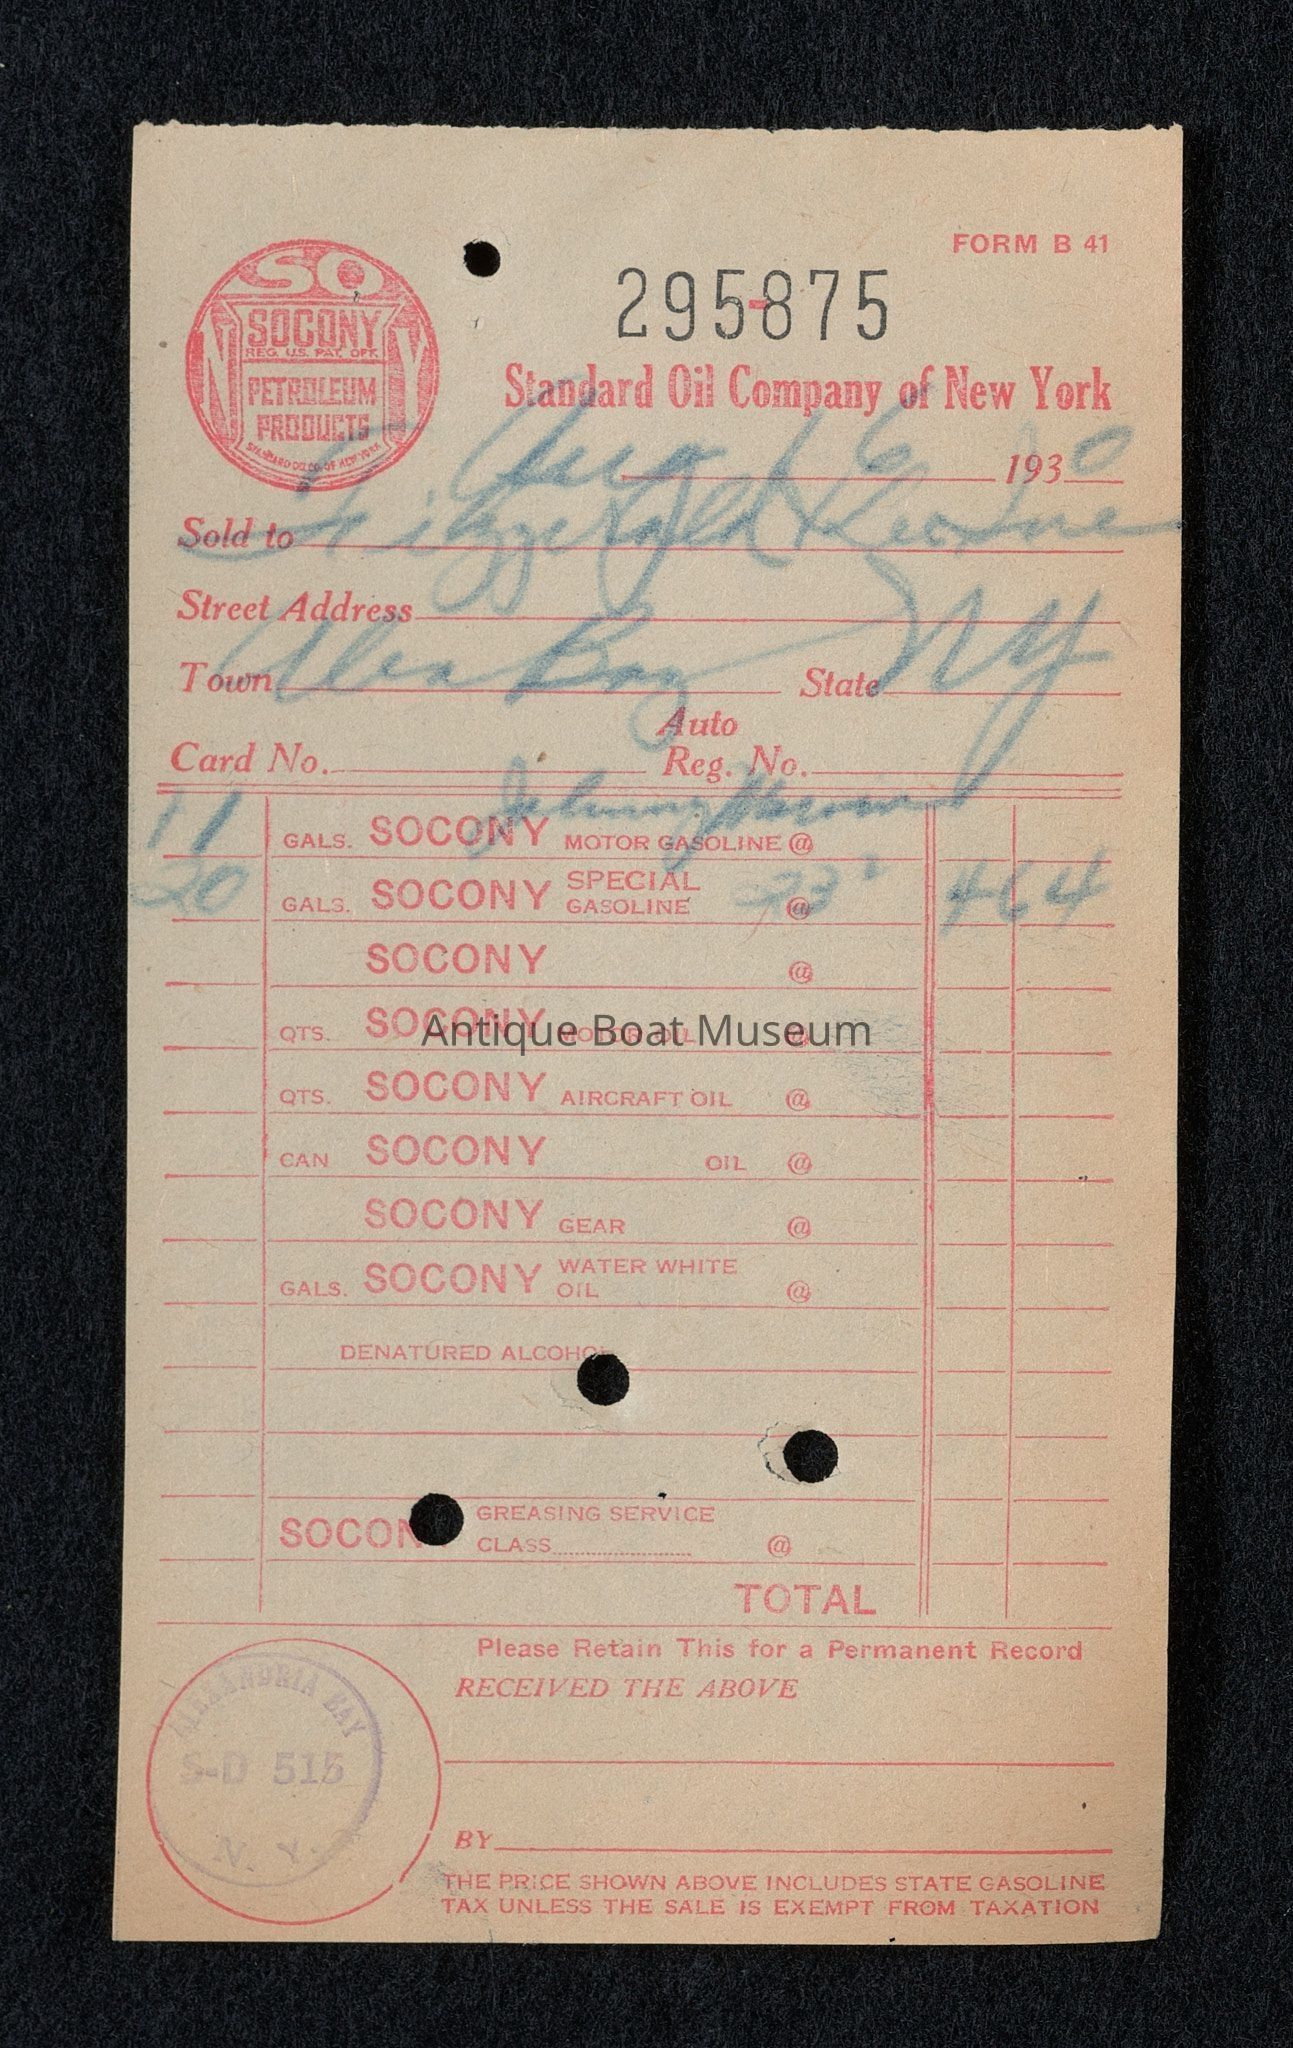 FORM B 41
295-875
SO
SOCONY
REG. U.S. PAT. OFF.
PETROLEUM
PRODUCTS
N Y
STANDARD OIL CO. OF NEW YORK
Standard Oil Company of New York
Aug 16 1930
Sold to Fitzgerald & Lee Inc
Street Address
Town Alex Bay State NY
Card No. Auto Reg. No.
11 GALS. SOCONY MOTOR GASOLINE @
20 GALS. SOCONY SPECIAL GASOLINE 23² @ 4 64
SOCONY @
QTS. SOCONY MOTOR OIL @
QTS. SOCONY AIRCRAFT OIL @
CAN SOCONY OIL @
SOCONY GEAR @
GALS. SOCONY WATER WHITE OIL @
DENATURED ALCOHOL
SOCON GREASING SERVICE CLASS @
TOTAL
Please Retain This for a Permanent Record
RECEIVED THE ABOVE
ALEXANDRIA BAY
S-D 515
N. Y.
BY
THE PRICE SHOWN ABOVE INCLUDES STATE GASOLINE
TAX UNLESS THE SALE IS EXEMPT FROM TAXATION
Antique Boat Museum